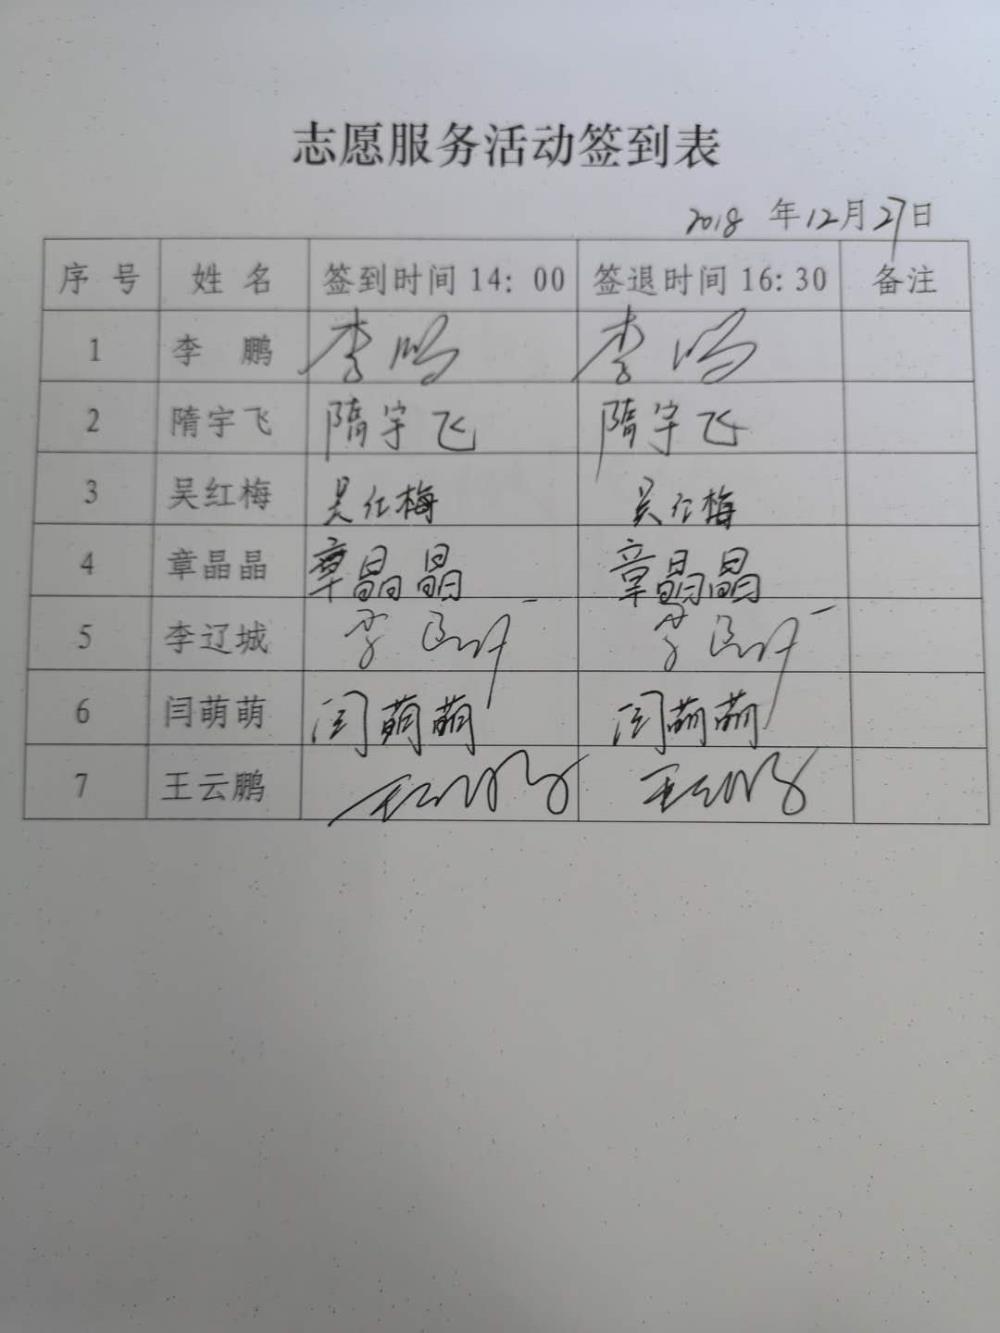 志愿服务活动签到表
2018 年12月27日
序号 姓名 签到时间14:00 签退时间16:30 备注
1 李鹏 李鹏 李鹏
2 隋宇飞 隋宇飞 隋宇飞
3 吴红梅 吴红梅 吴红梅
4 章晶晶 章晶晶 章晶晶
5 李辽城 李辽城 李辽城
6 闫萌萌 闫萌萌 闫萌萌
7 王云鹏 王云鹏 王云鹏